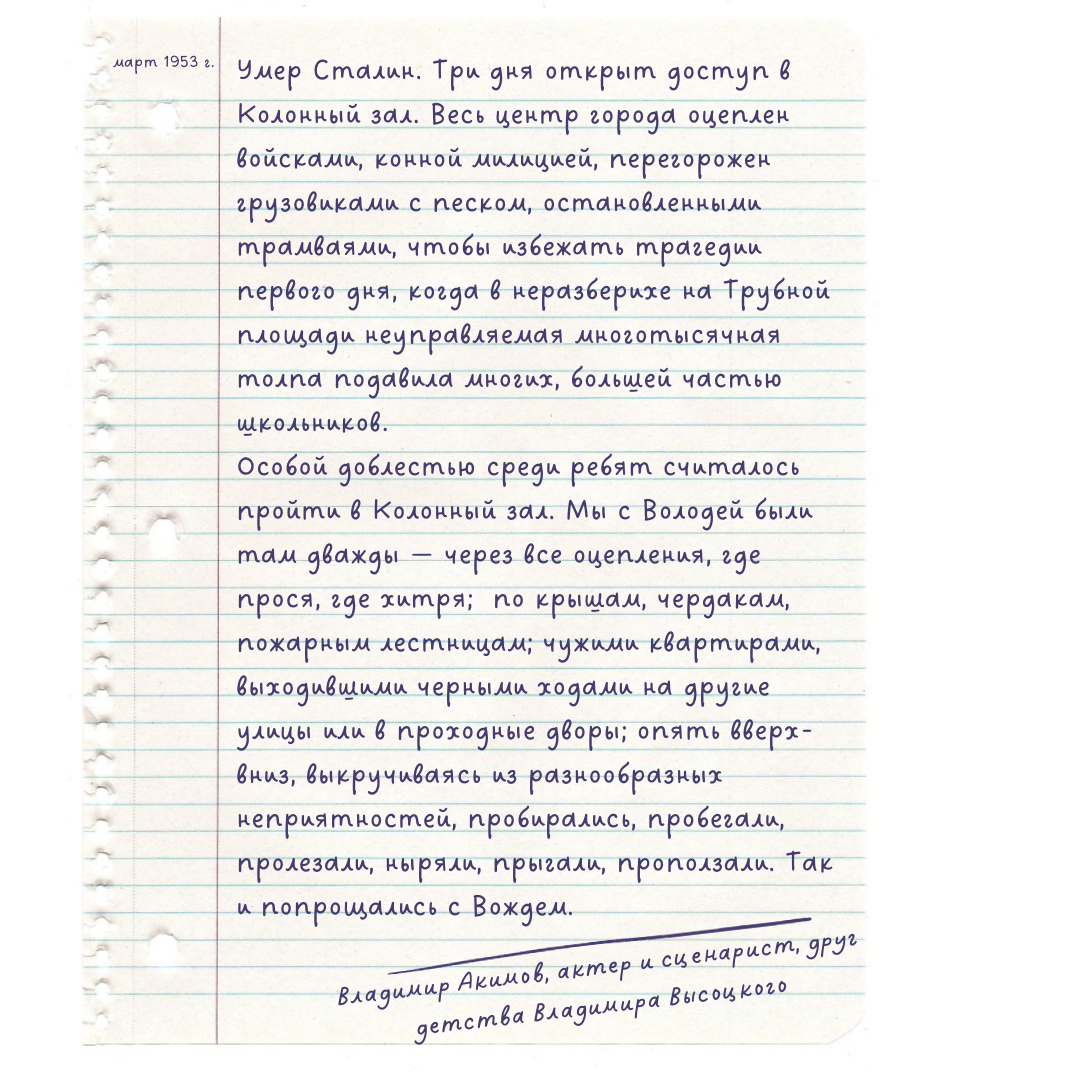 март 1953 г.
Умер Сталин. Три дня открыт доступ в
Колонный зал. Весь центр города оцеплен
войсками, конной милицией, перегорожен
грузовиками с песком, остановленными
трамваями, чтобы избежать трагедии
первого дня, когда в неразберихе на Трубной
площади неуправляемая многотысячная
толпа подавила многих, большей частью
школьников.
Особой доблестью среди ребят считалось
пройти в Колонный зал. Мы с Володей были
там дважды — через все оцепления, где
прося, где хитря; по крышам, чердакам,
пожарным лестницам; чужими квартирами,
выходившими черными ходами на другие
улицы или в проходные дворы; опять вверх-
вниз, выкручиваясь из разнообразных
неприятностей, пробирались, пробегали,
пролезали, ныряли, прыгали, проползали. Так
и попрощались с Вождем.
Владимир Акимов, актер и сценарист, друг
детства Владимира Высоцкого